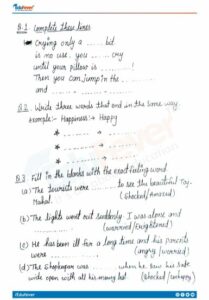 Eduhover
Q.1 Complete these lines
Crying only a ...... bit
is no use. you ...... cry
until your pillow is ...... !
Then you can jump in the ......
and ...... - ......
Q.2. Write three words that end in the same way.
Example:- Happiness:- Happy
* ......... - .........
* ......... - .........
* ......... - .........
Q.3 Fill in the blanks with the exact feeling word
(a) The tourists were ......... to see the beautiful Taj-
Mahal. (Shocked/Amazed)
(b) The lights went out suddenly. I was alone and
......... (worried/Frightened)
(c) He has been ill for a long time and his parents
were ......... (angry/worried)
(d) The Shopkeeper was ......... when he saw his safe
wide open with all his money lost. (Shocked/unhappy)